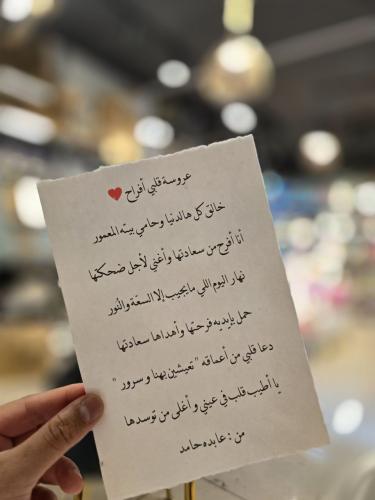 عروسة قلبي أفراح ❤
خالق كل هالدنيا وحامي بيته المعمور
أنا أفرح من سعادتها وأغني لأجل ضحكتها
نهار اليوم اللي مايجيب إلا السعة والنور
حمل بإيديه فرحتها وأهداها سعادتها
دعا قلبي من أعماقه "تعيشين بهنا وسرور"
يا أطيب قلب في عيني و أغلى من توسدها
من : عابده حامد